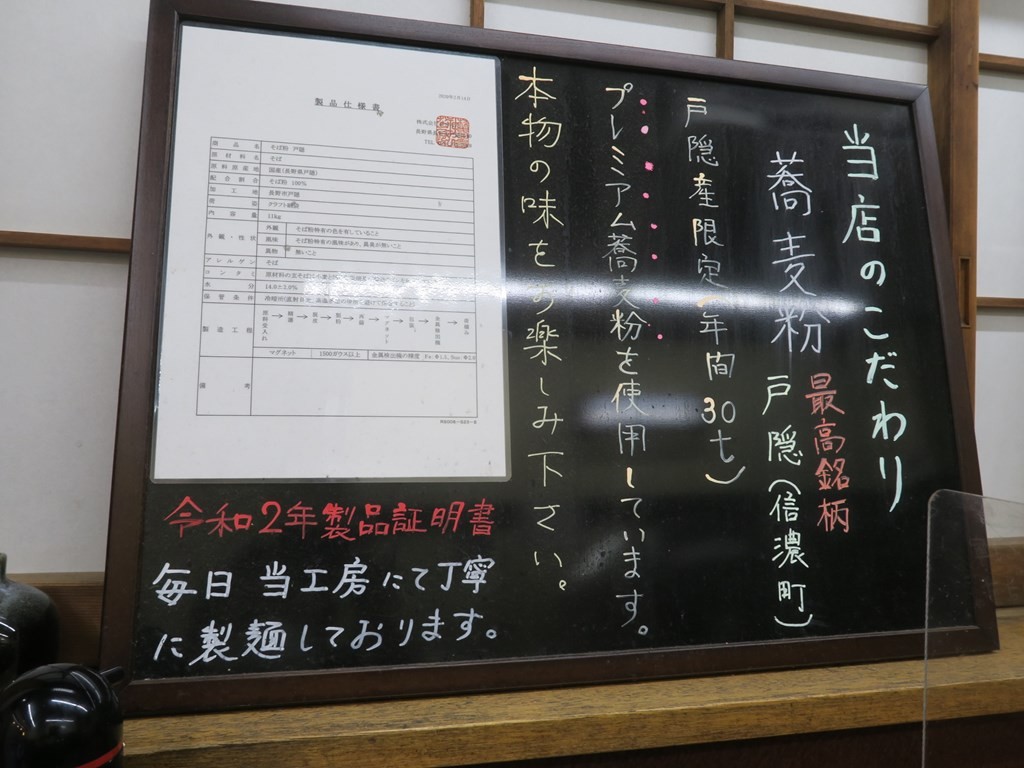 当店のこだわり
蕎麦粉 最高銘柄
戸隠(信濃町)
戸隠産限定(年間30t)
プレミアム蕎麦粉を使用しています。
本物の味をお楽しみ下さい。
令和2年製品証明書
毎日 当工房にて丁寧
に製麺しております。
製品仕様書
商品名 そば粉 戸隠
原材料名 そば
原料原産地 国産(長野県戸隠)
配合割合 そば粉 100%
加工地 長野市戸隠
荷姿 クラフト
内容量 11kg
外観・性状
外観 そば粉特有の色を有していること
風味 そば粉特有の風味があり、異臭が無いこと
異物 無いこと
アレルゲン そば
水分 14.0±2.0%
保管条件
製造工程
マグネット 1500ガウス以上 金属検出機の精度
備考